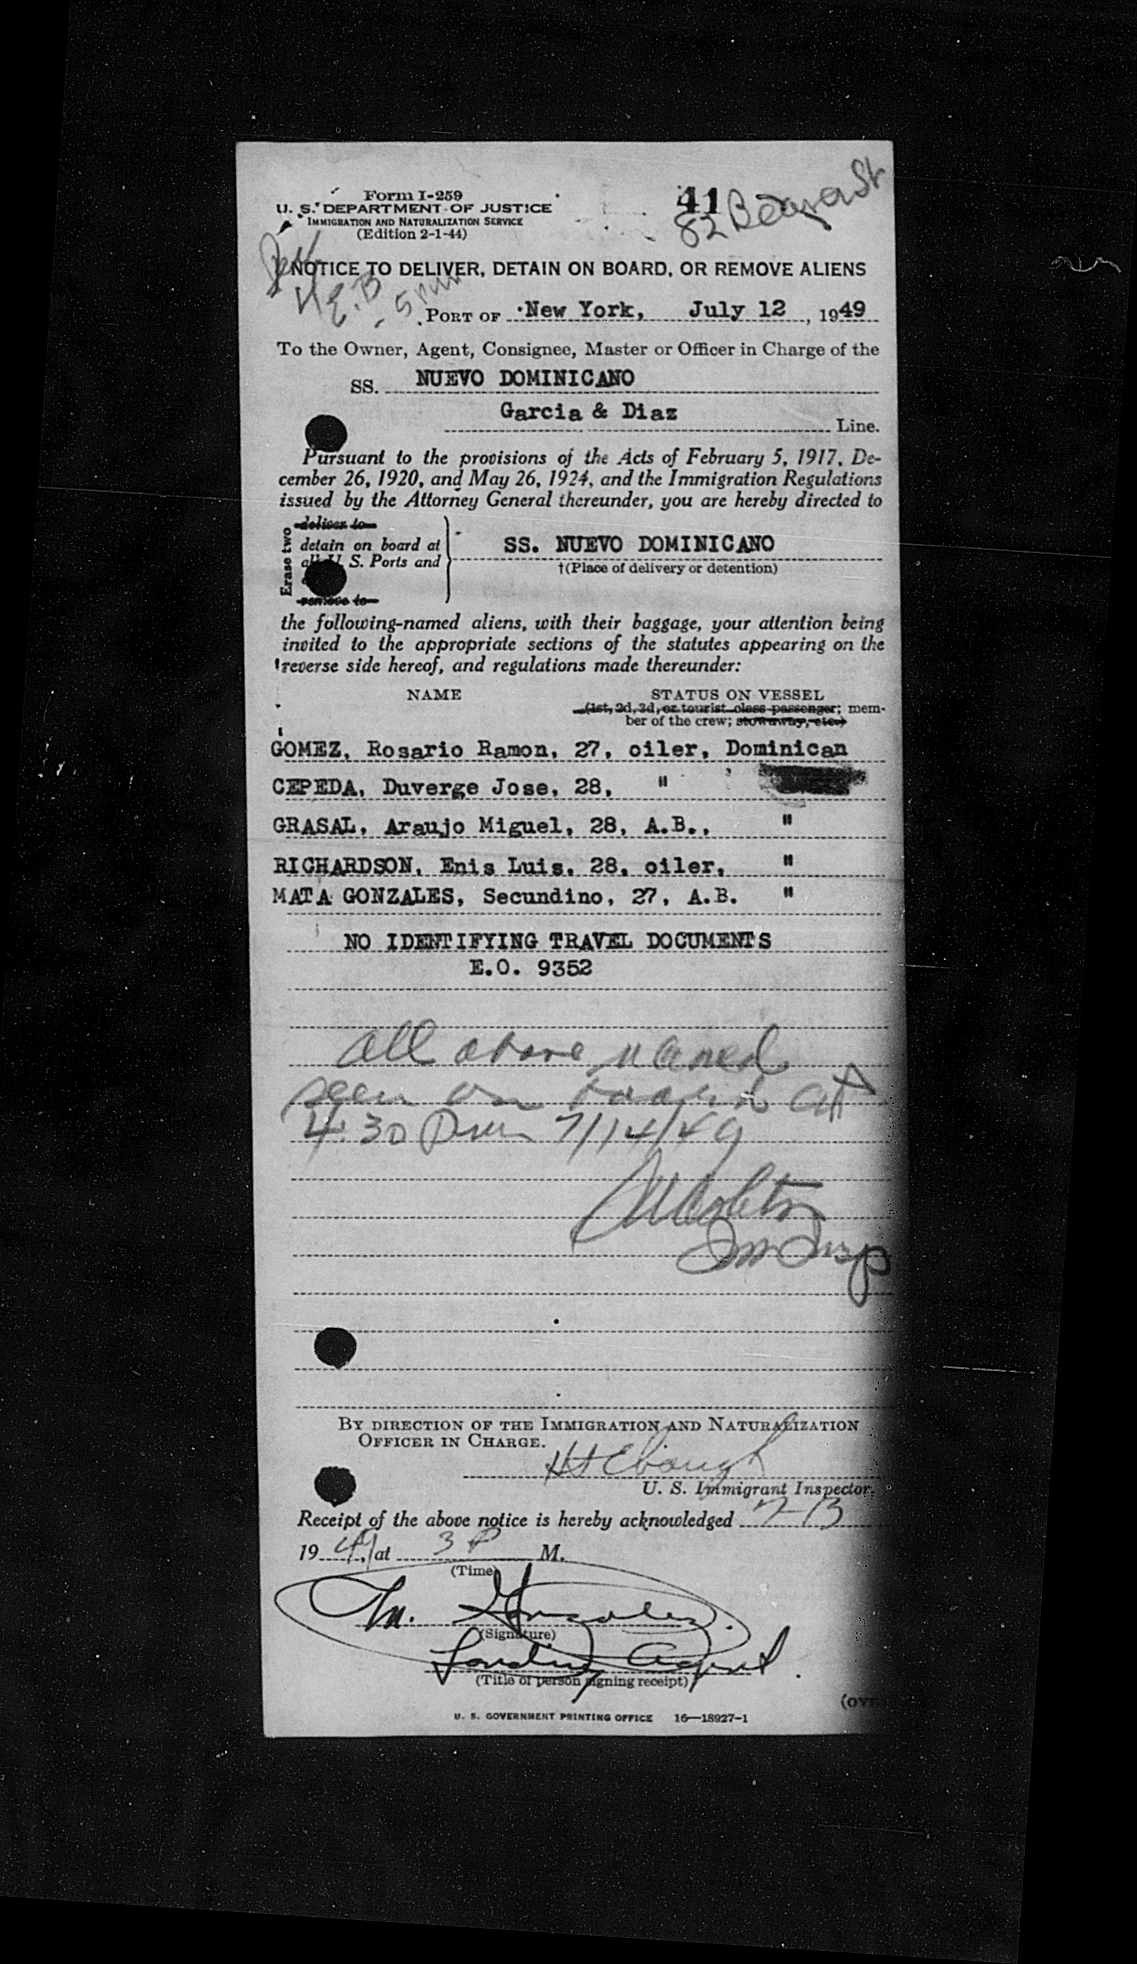 Form I-259
U. S. DEPARTMENT OF JUSTICE
IMMIGRATION AND NATURALIZATION SERVICE
(Edition 2-1-44)
41
82 Beaver St
NOTICE TO DELIVER, DETAIN ON BOARD, OR REMOVE ALIENS
5 pm
PORT OF New York, July 12, 1949
To the Owner, Agent, Consignee, Master or Officer in Charge of the
SS. NUEVO DOMINICANO
Garcia & Diaz Line.
Pursuant to the provisions of the Acts of February 5, 1917, De-
cember 26, 1920, and May 26, 1924, and the Immigration Regulations
issued by the Attorney General thereunder, you are hereby directed to
Erase two
deliver to
detain on board at
all U. S. Ports and
remove to
SS. NUEVO DOMINICANO
†(Place of delivery or detention)
the following-named aliens, with their baggage, your attention being
invited to the appropriate sections of the statutes appearing on the
reverse side hereof, and regulations made thereunder:
NAME STATUS ON VESSEL
(1st, 2d, 3d, or tourist class passenger; mem-
ber of the crew; stowaway, etc.)
GOMEZ, Rosario Ramon, 27, oiler, Dominican
CEPEDA, Duverge Jose, 28, "
GRASAL, Araujo Miguel, 28, A.B., "
RICHARDSON, Enis Luis, 28, oiler, "
MATA GONZALES, Secundino, 27, A.B. "
NO IDENTIFYING TRAVEL DOCUMENTS
E.O. 9352
all above named
seen on board at
4:30 pm 7/14/49
Im Insp
BY DIRECTION OF THE IMMIGRATION AND NATURALIZATION
OFFICER IN CHARGE.
H Ebaugh
U. S. Immigrant Inspector.
Receipt of the above notice is hereby acknowledged 7-13
1949, at 3 P M.
(Time)
M. Gonzalez
(Signature)
Landing Agent.
(Title of person signing receipt)
(OVE
U. S. GOVERNMENT PRINTING OFFICE 16—18927-1